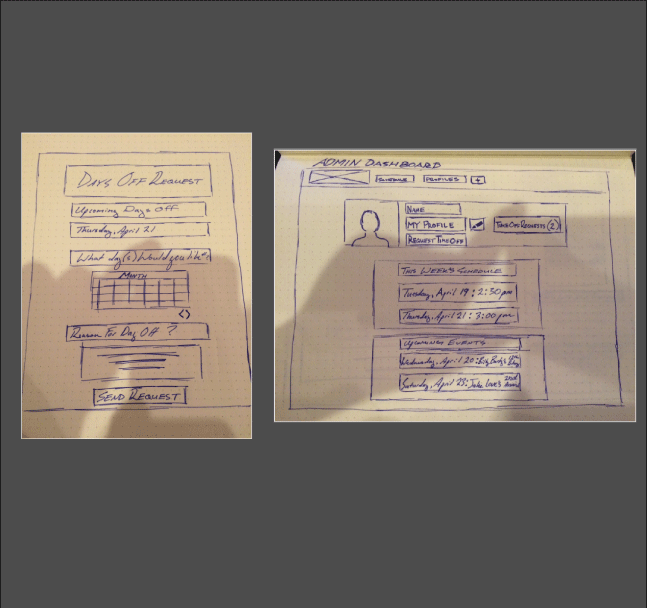 DAYS OFF REQUEST
Upcoming Days Off
Thursday, April 21
What day(s) Would you like?
MONTH
< >
Reason For Day Off ?
SEND REQUEST
ADMIN DASHBOARD
SCHEDULE
PROFILES
+
NAME
MY PROFILE
REQUEST TIME OFF
TIME OFF REQUESTS (2)
THIS WEEK'S SCHEDULE
Tuesday, April 19 : 2:30pm
Thursday, April 21 : 3:00pm
UPCOMING EVENTS
Wednesday, April 20:
Saturday, April 23: Jake